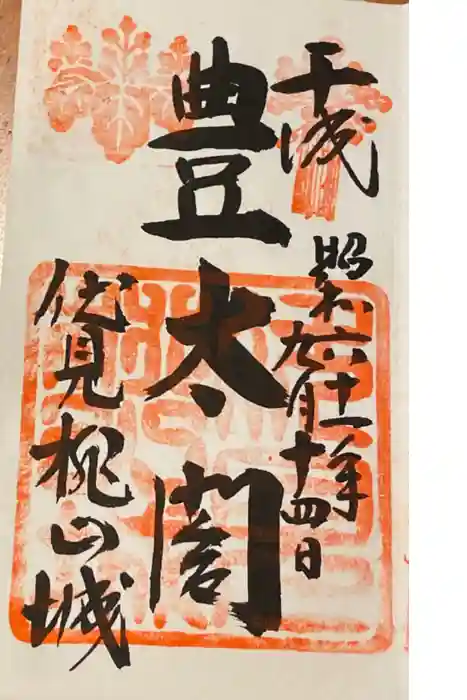 千成
昭和六十一年
九月十四日
豊太閤
伏見桃山城